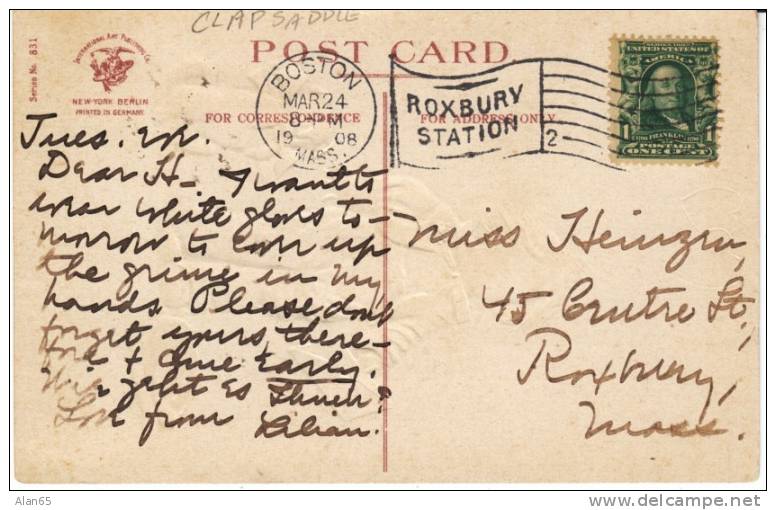 CLAPSADDLE
Series No. 831
International Art Publishing Co.
NEW-YORK BERLIN
PRINTED IN GERMANY
POST CARD
FOR CORRESPONDENCE
FOR ADDRESS ONLY
BOSTON
MAR 24
8 PM
19 08
MASS.
ROXBURY
STATION
2
SERIES 1902
UNITED STATES OF
AMERICA
FRANKLIN
1 1
POSTAGE
ONE CENT
Tues. eve.
Dear H- I want to
wear white gloves to-
morrow to cover up
the grime in my
hands. Please don't
forget yours, there-
fore & come early.
Love from Lilian.
Miss Heinzen,
45 Centre St.,
Roxbury,
Mass.
Alan65
delcampe.net